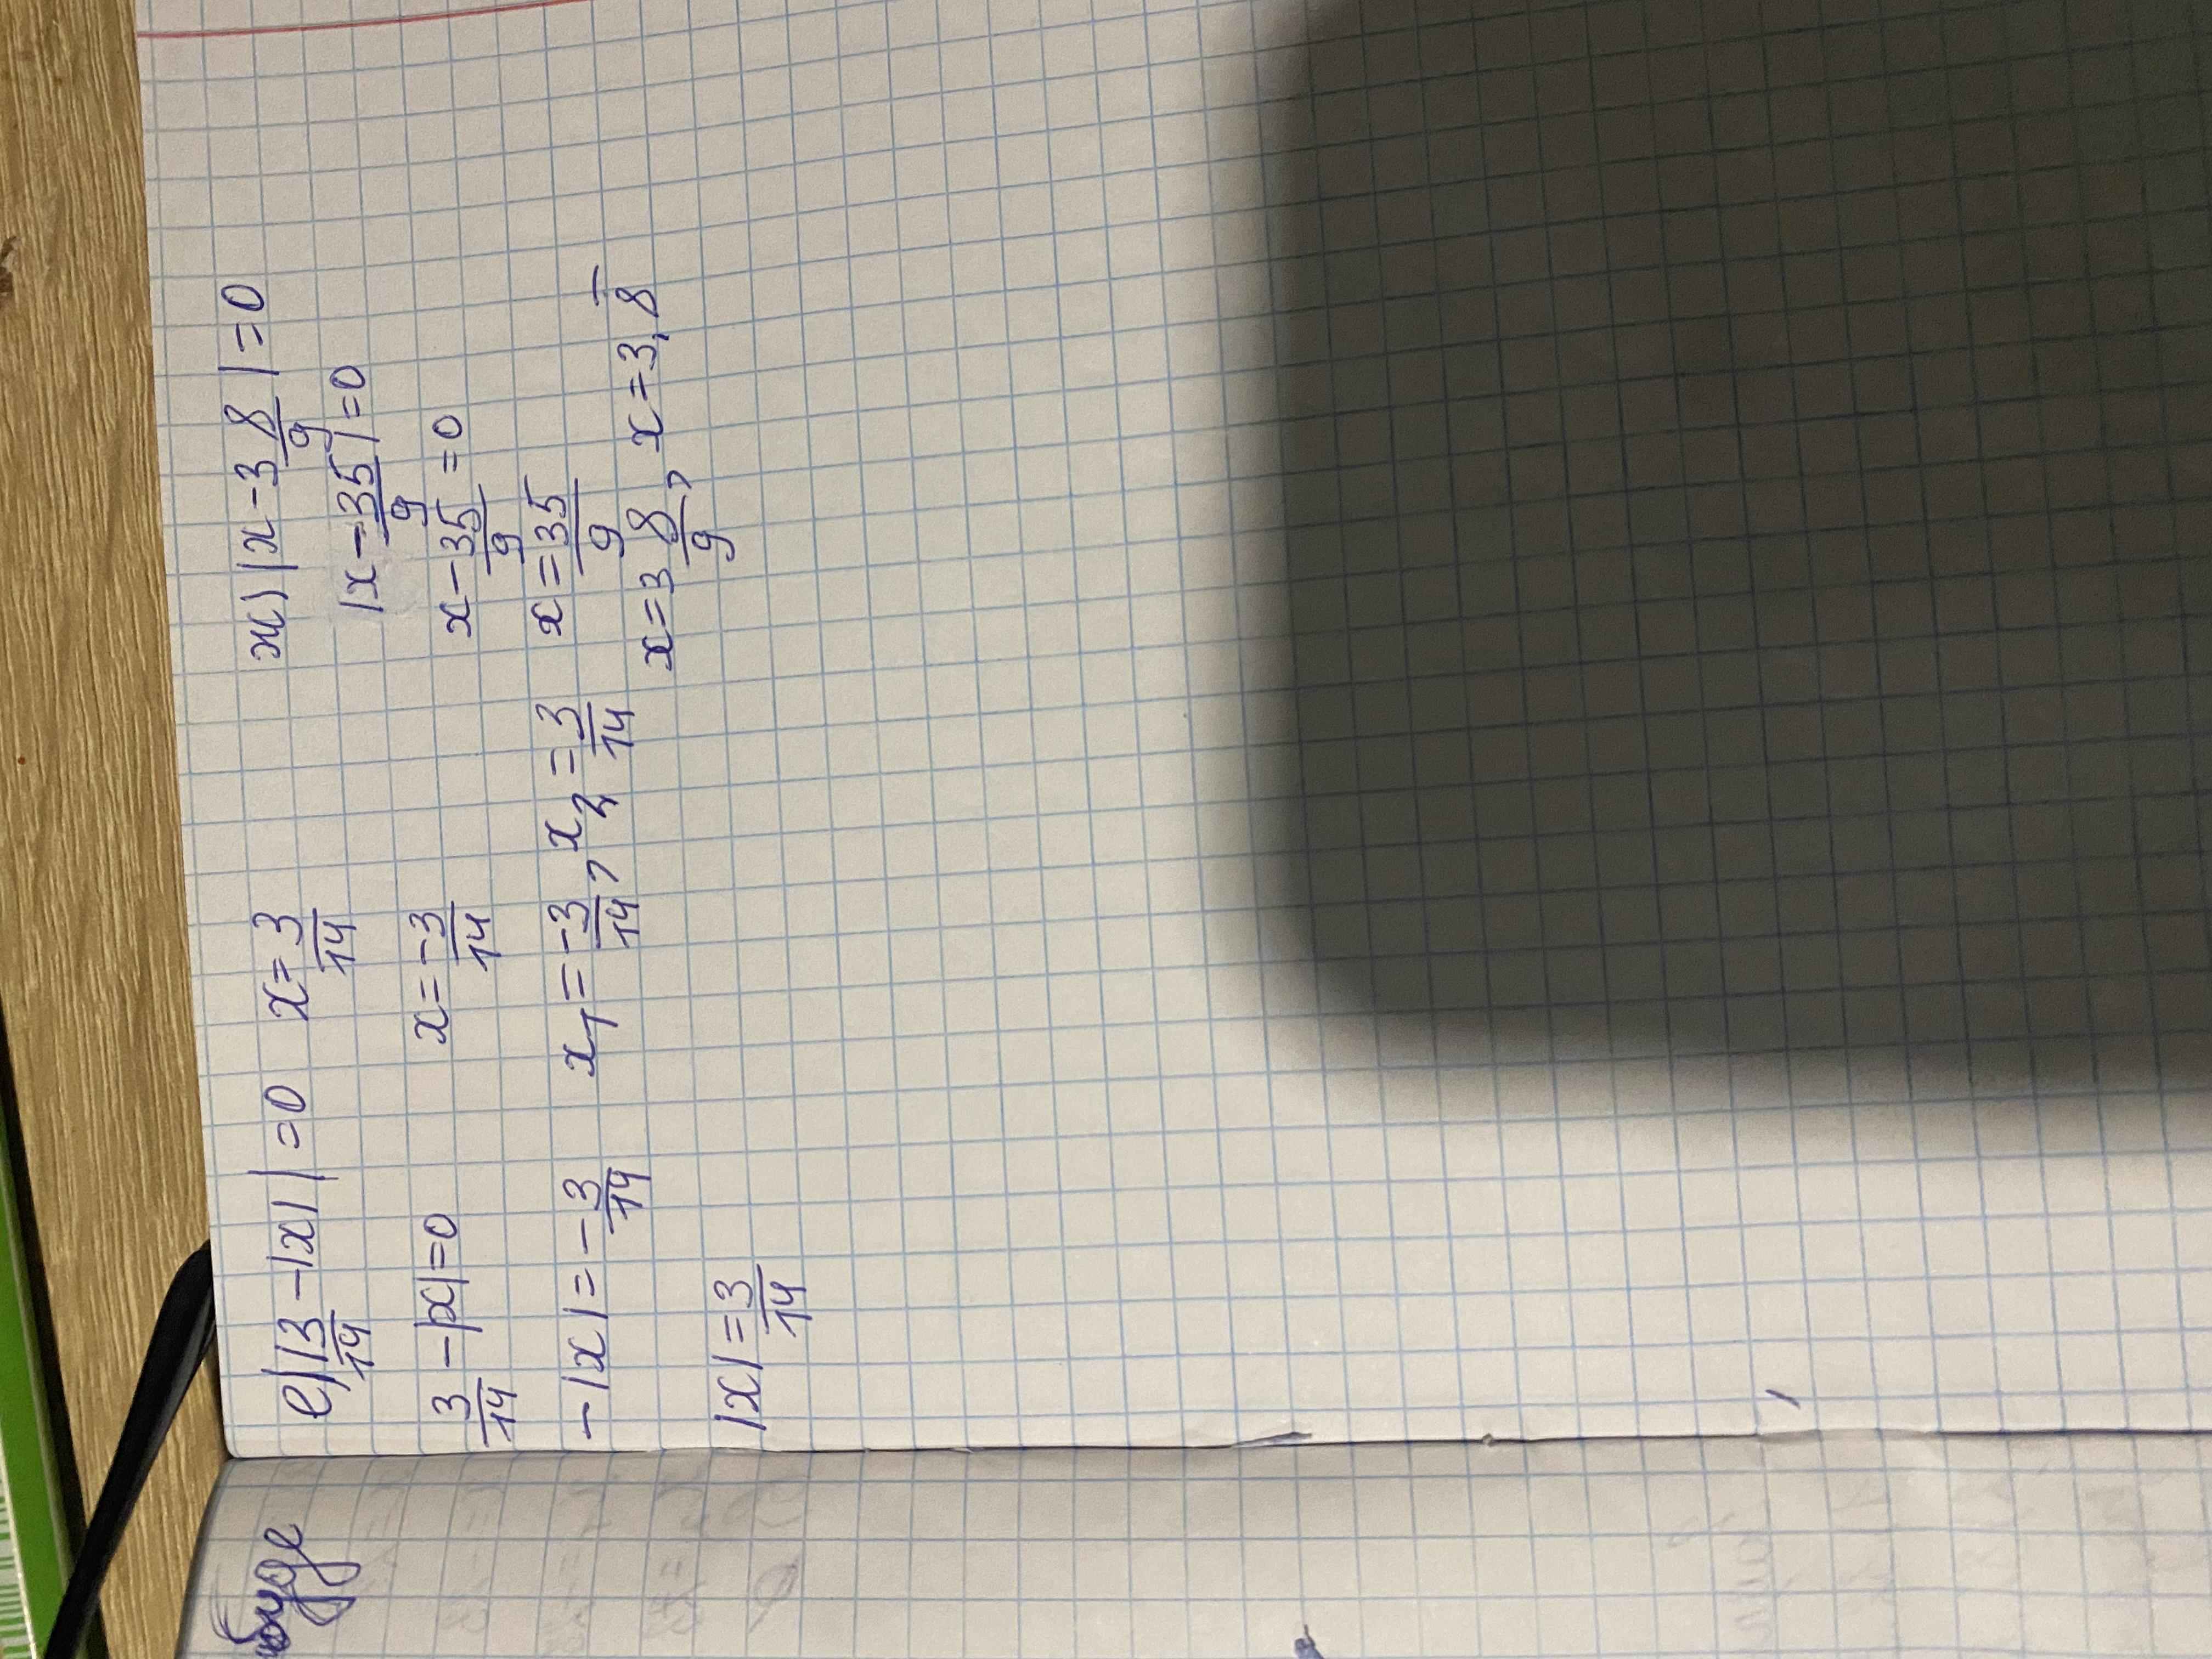 е) |3/14 - |x|| = 0
3/14 - |x| = 0
- |x| = - 3/14
|x| = 3/14
x = 3/14
x = - 3/14
x₁ = - 3/14, x₂ = 3/14
ж) |x - 3 8/9| = 0
|x - 35/9| = 0
x - 35/9 = 0
x = 35/9
x = 3 8/9, x = 3,8̅